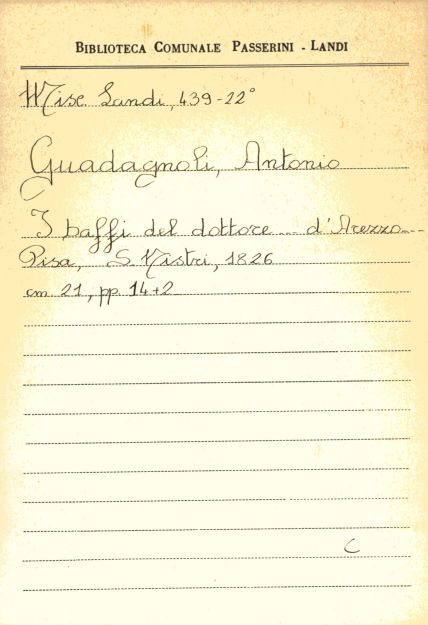 BIBLIOTECA COMUNALE PASSERINI - LANDI
Misc Landi, 439-22°
Guadagnoli, Antonio
I baffi del dottore ... d'Arezzo...
Pisa, S. Nistri, 1826
cm. 21, pp. 14+2
C